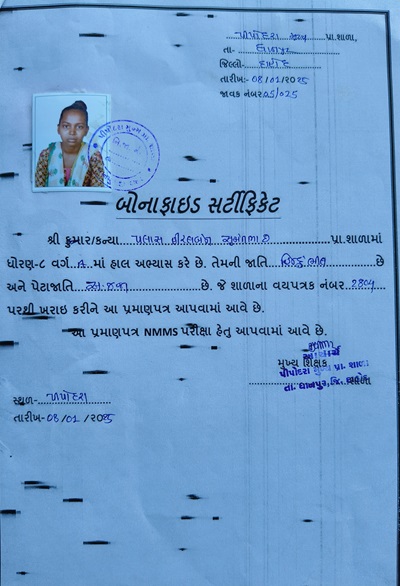 પીપોદરા મુખ્ય પ્રા.શાળા,
તા- ધાનપુર
જિલ્લો- દાહોદ
તારીખ:- 08/01/2025
જાવક નંબર:05/025
બોનાફાઇડ સર્ટીફિકેટ
શ્રી કુમાર/કન્યા પ્રા.શાળામાં
ધોરણ-૮ વર્ગ A માં હાલ અભ્યાસ કરે છે. તેમની જાતિ હિન્દુ ભીલ છે
અને પેટાજાતિ છે. જે શાળાના વયપત્રક નંબર
પરથી ખરાઇ કરીને આ પ્રમાણપત્ર આપવામાં આવે છે.
આ પ્રમાણપત્ર NMMS પરીક્ષા હેતુ આપવામાં આવે છે.
આચાર્ય
મુખ્ય શિક્ષક
પીપોદરા મુખ્ય પ્રા. શાળા
તા. ધાનપુર, જિ. દાહોદ
સ્થળ- પીપોદરા
તારીખ- 08/01/2025